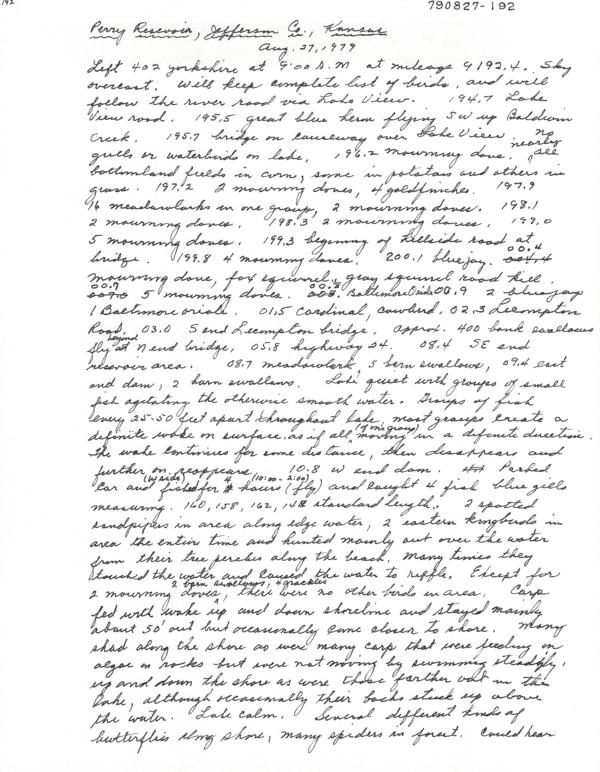 192
790827-192
Perry Resevoir, Jefferson Co., Kansas
Aug. 27, 1979
Left 402 yorkshire at 9:00 A.M at mileage 9192.4. Sky
overcast. Will keep complete list of birds, and will
follow the river road via Lake View. 194.7 Lake
View road. 195.5 great blue heron flying SW up Baldwin
Creek. 195.7 bridge on causeway over Lake View no
gulls or waterbirds on lake, 196.2 mourning dove. nearly all
bottomland fields in corn, some in potatoes and others in
grass. 197.2 2 mourning doves, 4 goldfinches. 197.9
16 meadowlarks in one group, 2 mourning doves. 198.1
2 mourning doves. 198.3 2 mourning doves, 199.0
5 mourning doves. 199.3 beginning of hillside road at
bridge. 199.8 4 mourning doves. 200.1 bluejay. 00.4
mourning dove, fox squirrel, gray squirrel road kill.
00.7 5 mourning doves. 00.8 Baltimore Oriole 00.9 2 bluejays
1 Baltimore oriole. 01.5 cardinal, cowbird, 02.3 Lecompton
Road. 03.0 S end Lecompton bridge. approx. 400 bank swallows
fly beyond at N end bridge, 05.8 highway 24. 08.4 SE end
resevoir area. 08.7 meadowlark, 5 barn swallows, 09.4 east
end dam, 2 barn swallows. Lake quiet with groups of small
fish agitating the otherwise smooth water. Groups of fish
every 25-50 feet apart throughout lake, most groups create a
definite wake on surface as if all (of one group) moving in a definite direction.
The wake continues for some distance, then disappears and
further on reappears. 10.8 W end dam. Parked
car and (W side) fished for 4 hours (10:00-2:00) (fly) and caught 4 fish blue gills
measuring. 160, 158, 162, 148 standard length. 2 spotted
sandpipers in area along edge water, 2 eastern kingbirds in
area the entire time and hunted mainly out over the water
from their tree perches along the beach. Many times they
touched the water and caused the water to riffle. Except for
2 mourning doves, 2 barn swallows, 4 grackles there were no other birds in area. Carp
fed with wake up and down shoreline and stayed mainly
about 50' out but occasionally came closer to shore. Many
shad along the shore as were many carp that were feeding on
algae on rocks but were not moving by swimming steadily,
up and down the shore as were those farther out in the
lake, although occasionally their backs stuck up above
the water. Lake calm. Several different kinds of
butterflies along shore, many spiders in forest. Could hear